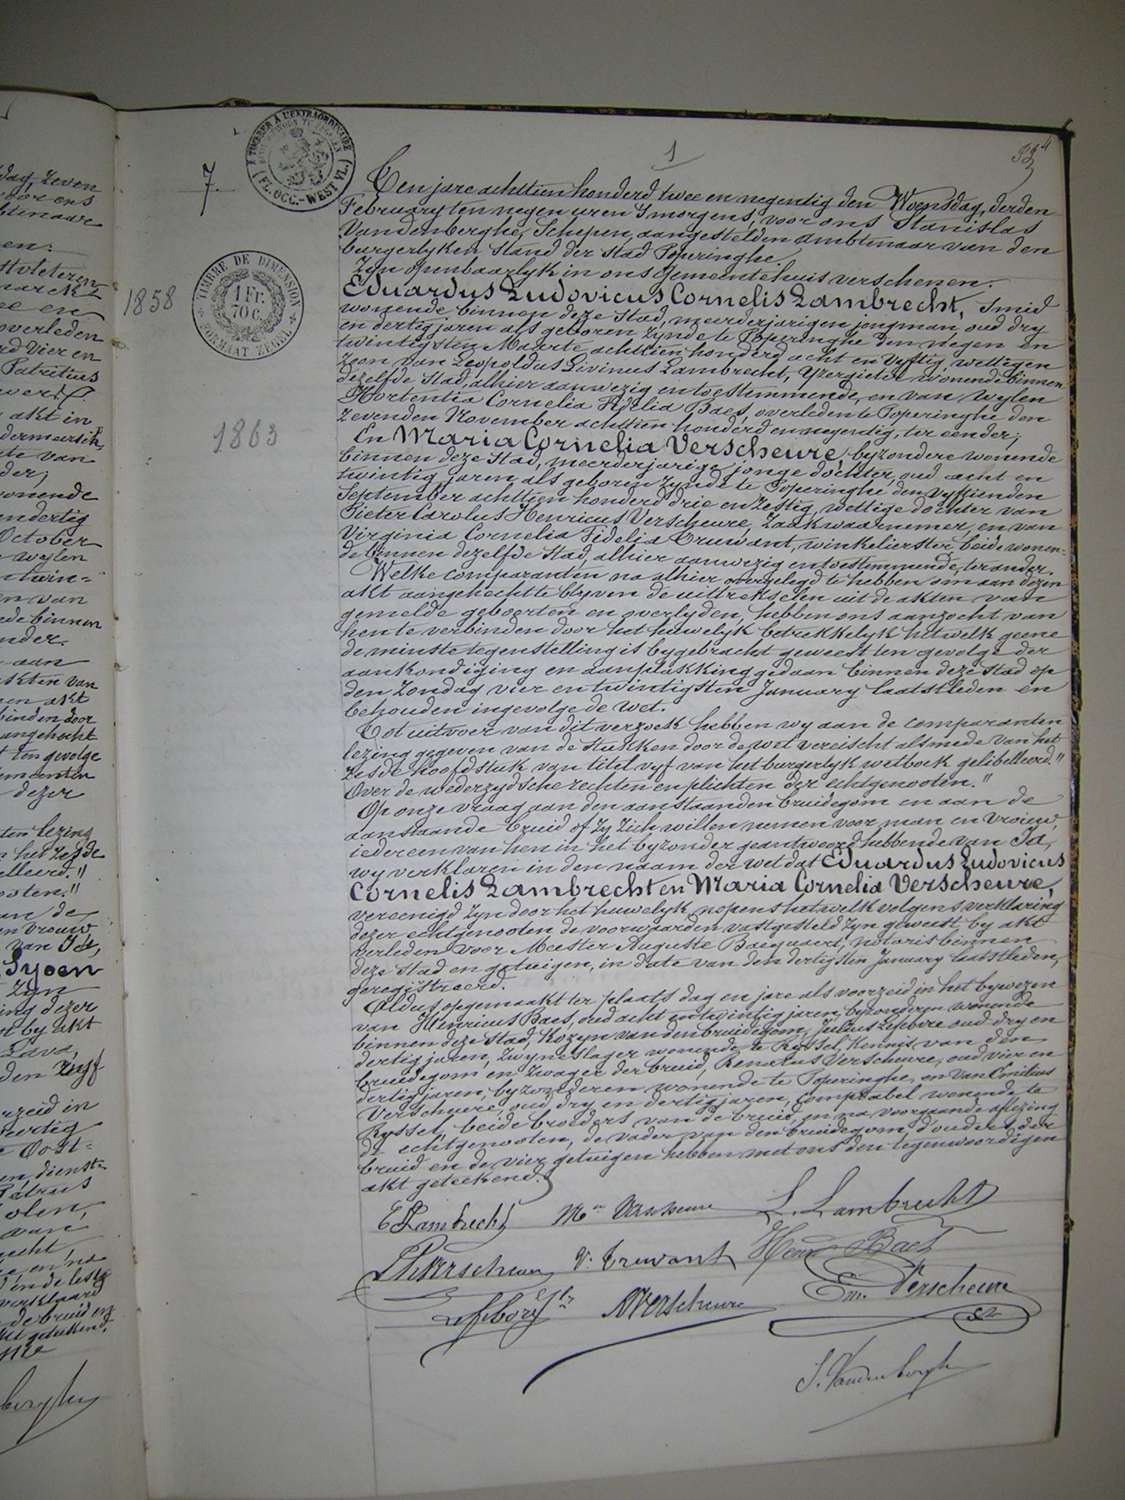 1
33 4
7.
TIMBRER À L'EXTRAORDINAIRE
(FL. OCC.-WEST VL.)
TIMBRE DE DIMENSION
1 FR. 70 C.
FORMAAT ZEGEL
1858
1863
Ten jare achttien honderd twee en negentig den Woensdag, derden
February ten negen uren 's morgens, voor ons Stanislas
Vandenberghe, Schepen, aangestelden Ambtenaar van den
burgerlyken Stand der Stad Poperinghe.
Zyn openbaarlyk in ons Gemeentehuis verschenen.
Eduardus Ludovicus Cornelis Lambrecht, Smid
wonende binnen deze Stad, meerderjarigen jongman, oud dry
en dertig jaren als geboren zynde te Poperinghe den negen en
twintigsten Maarte achttien honderd acht en vyftig, wettigen
zoon van Leopoldus Livinus Lambrecht, Yzergieter wonende binnen
dezelfde Stad, alhier aanwezig en toestemmende, en van wylen
Hortentia Cornelia Fidelia Baes, overleden te Poperinghe den
zevenden November achttien honderd en negentig, ter eender;
En Maria Cornelia Verscheure, byzondere wonende
binnen deze Stad, meerderjarige jonge dochter, oud acht en
twintig jaren als geboren zynde te Poperinghe den vyftienden
September achttien honderd drie en zestig, wettige dochter van
Pieter Carolus Henricus Verscheure, Zaakwaarnemer, en van
Virginia Cornelia Fidelia Truwant, winkelierster, beide wonen-
de binnen dezelfde Stad, alhier aanwezig en toestemmende, ter ander.
Welke comparanten na alhier overgelegd te hebben om aan dezen
akt aangehecht te blyven de uittreksels uit de akten van
gemelde geboorten en overlyden, hebben ons aanzocht van
hen te verbinden door het huwelyk betrekkelyk hetwelk geene
de minste tegenstelling is bygebracht geweest ten gevolge der
aankondiging en aanplakking gedaan binnen deze Stad op
den Zondag vier en twintigsten January laatstleden en
behouden ingevolge de wet.
Tot uitvoer van dit verzoek hebben wy aan de comparanten
lezing gegeven van de Stukken door de wet vereischt alsmede van het
zesde hoofdstuk van titel vyf van het burgerlyk wetboek gelibelleerd "
Over de wederzydsche rechten en plichten der echtgenooten."
Op onze vraag aan den aanstaanden bruidegom en aan de
aanstaande bruid of zy zich willen nemen voor man en vrouw,
iedereen van hen in het byzonder geantwoord hebbende van Ja,
wy verklaren in den naam der wet dat Eduardus Ludovicus
Cornelis Lambrecht en Maria Cornelia Verscheure,
vereenigd zyn door het huwelyk, nopens hetwelk volgens verklaring
dezer echtgenooten de voorwaarden vastgesteld zyn geweest by akt
verleden voor Meester Auguste Baeguaert, notaris binnen
deze Stad en getuigen, in date van den dertigsten January laatstleden,
geregistreerd.
Aldus opgemaakt ter plaats dag en jare als voorzeid in het bywezen
van Henricus Baes, oud acht en twintig jaren, byzonderen wonende
binnen deze Stad, Kozyn van den bruidegom, Julius Lefebvre oud dry en
dertig jaren, Zwynestager wonende te Ryssel, Kennis van den
bruidegom en Zwager der bruid, Renatus Verscheure, oud vier en
dertig jaren, byzonderen wonende te Poperinghe, en van Emilius
Verscheure, oud dry en dertig jaren, Comptabel wonende te
Ryssel, beide broeders van de bruid, en na voorgaande aflezing
de echtgenooten, de vader van den bruidegom, d'ouders der
bruid en de vier getuigen hebben met ons den tegenwoordigen
akt geteekend.
E Lambrecht Ma Verscheure L. Lambrecht
P Verscheure V. Truwant Henri Baes
Lefebvre Jles R Verscheure Em. Verscheure
S. Vandenberghe